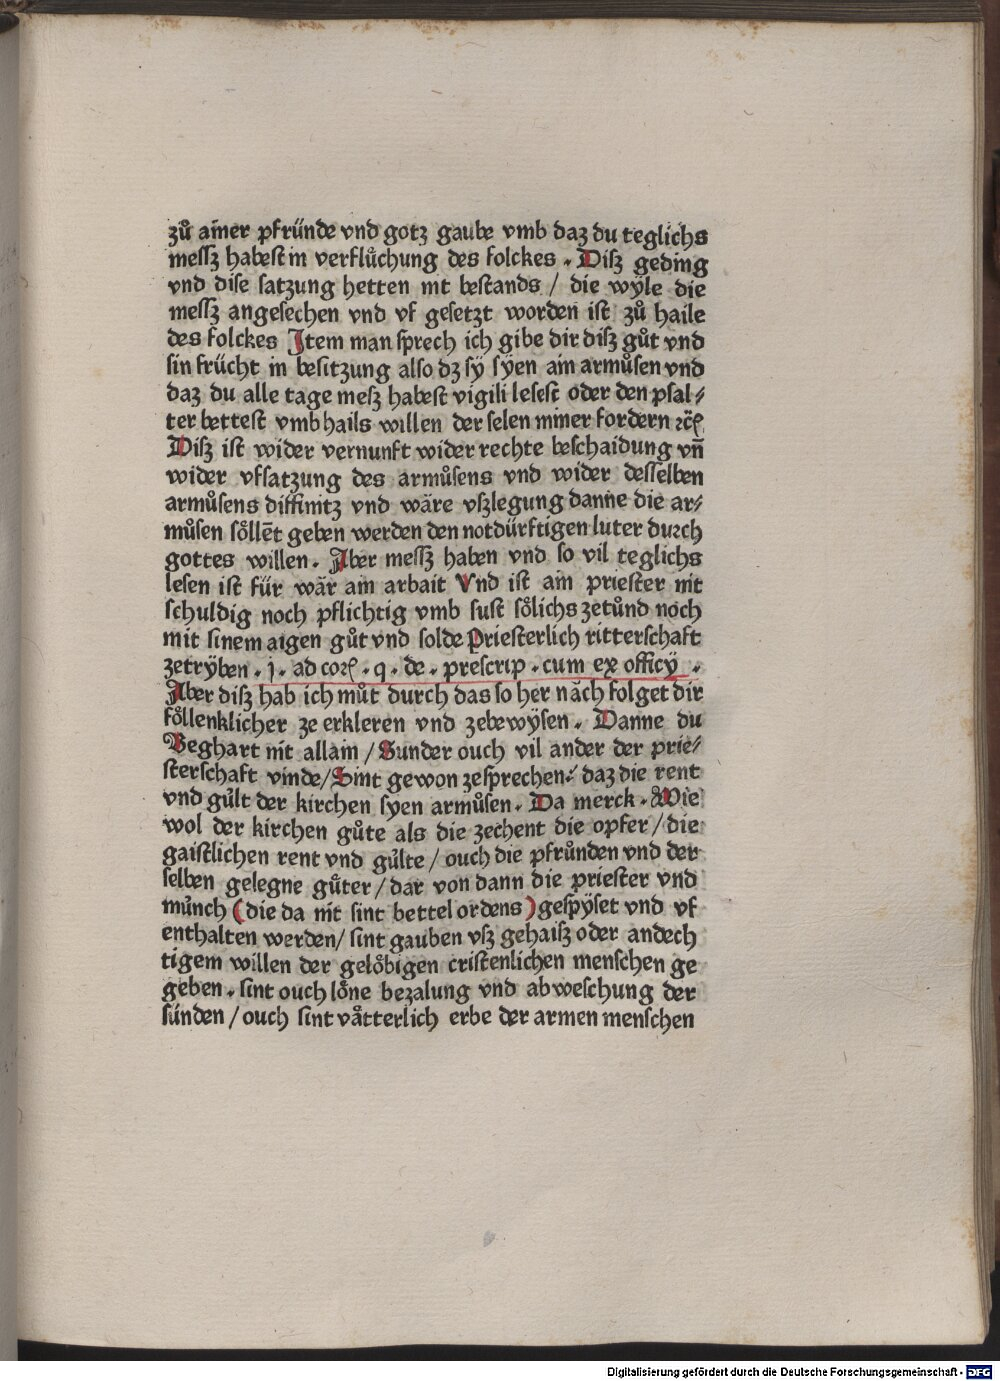 zů ainer pfründe vnd gotz gaube vmb daz du teglichs
messz habest in verflůchung des folckes . Disz geding
vnd dise satzung hetten nit bestands / die wÿle die
messz angesechen vnd vf gesetzt worden ist zů haile
des folckes Item man sprech ich gibe dir disz gůt vnd
sin frücht in besitzung also dz sÿ sÿen ain armůsen vnd
daz du alle tage mesz habest vigili lesest oder den psal⸗
ter bettest vmb hails willen der selen miner fordern ꝛc̄
Disz ist wider vernunft wider rechte beschaidung vn̄
wider vfsatzung des armůsens vnd wider desselben
armůsens diffinitz vnd wäre vszlegung danne die ar⸗
můsen söllēt geben werden den notdürftigen luter durch
gottes willen . Aber messz haben vnd so vil teglichs
lesen ist für wär ain arbait Vnd ist ain priester nit
schuldig noch pflichtig vmb sust sölichs zetůnd noch
mit sinem aigen gůt vnd solde Priesterlich ritterschaft
zetrÿben . j . ad coꝝ . q . de . prescrip . cum ex officÿ .
Aber disz hab ich můt durch das so her näch folget dir
föllenklicher ze erkleren vnd zebewÿsen . Danne du
Beghart nit allain / Sunder ouch vil ander der prie⸗
sterschaft vinde / Sint gewon zesprechen : daz die rent
vnd gült der kirchen syen armůsen . Da merck . Wie
wol der kirchen gůte als die zechent die opfer / die
gaistlichen rent vnd gülte / ouch die pfrůnden vnd der
selben gelegne gůter / dar von dann die priester vnd
münch ( die da nit sint bettel ordens ) gespÿset vnd vf
enthalten werden / sint gauben vsz gehaisz oder andech
tigem willen der gelöbigen cristenlichen menschen ge
geben . sint ouch löne bezalung vnd abweschung der
sünden / ouch sint vätterlich erbe der armen menschen
Digitalisierung gefördert durch die Deutsche Forschungsgemeinschaft - DFG